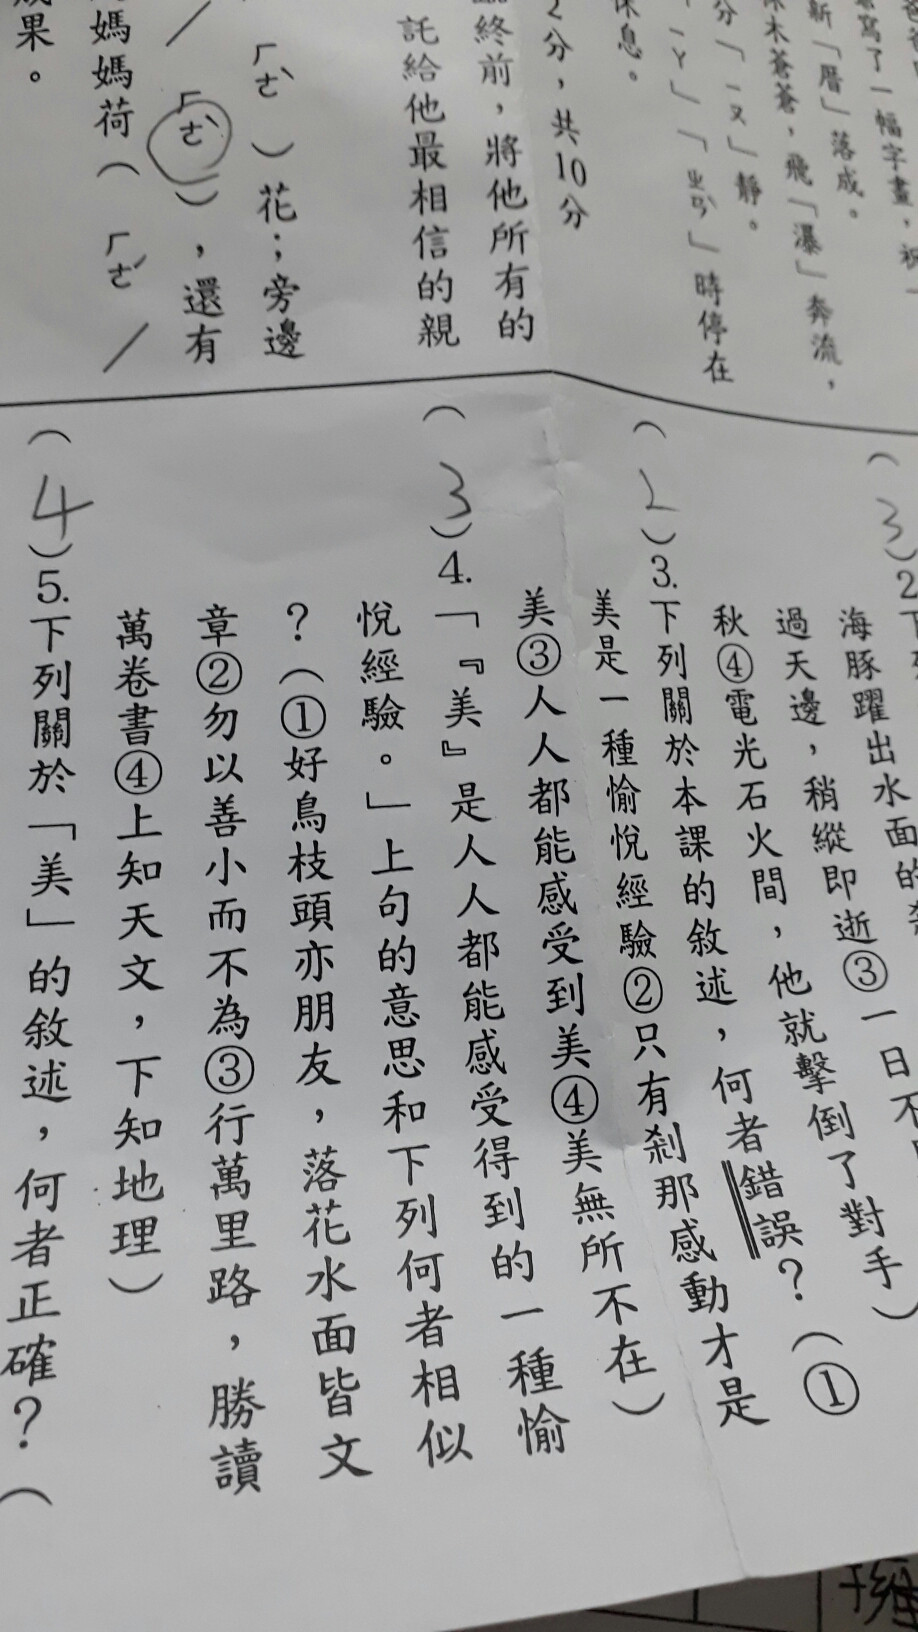 幅字畫，祝
新「厝」落成。
木蒼蒼，飛「瀑」奔流，
分「ㄧㄡ」靜。
「ㄧㄚ」「ㄓㄢˋ」時停在
休息。
2分，共10分
終前，將他所有的
託給他最相信的親
ㄏㄜˋ）花；旁邊
／ㄏㄜˋ），還有
媽媽荷（ㄏㄜˊ／
成果。
（3）2.
海豚躍出水面的
過天邊，稍縱即逝③一日不
秋④電光石火間，他就擊倒了對手）
（2）3.下列關於本課的敘述，何者錯誤？（①
美是一種愉悅經驗②只有剎那感動才是
美③人人都能感受到美④美無所不在）
（3）4.「『美』是人人都能感受得到的一種愉
悅經驗。」上句的意思和下列何者相似
？（①好鳥枝頭亦朋友，落花水面皆文
章②勿以善小而不為③行萬里路，勝讀
萬卷書④上知天文，下知地理）
（4）5.下列關於「美」的敘述，何者正確？（